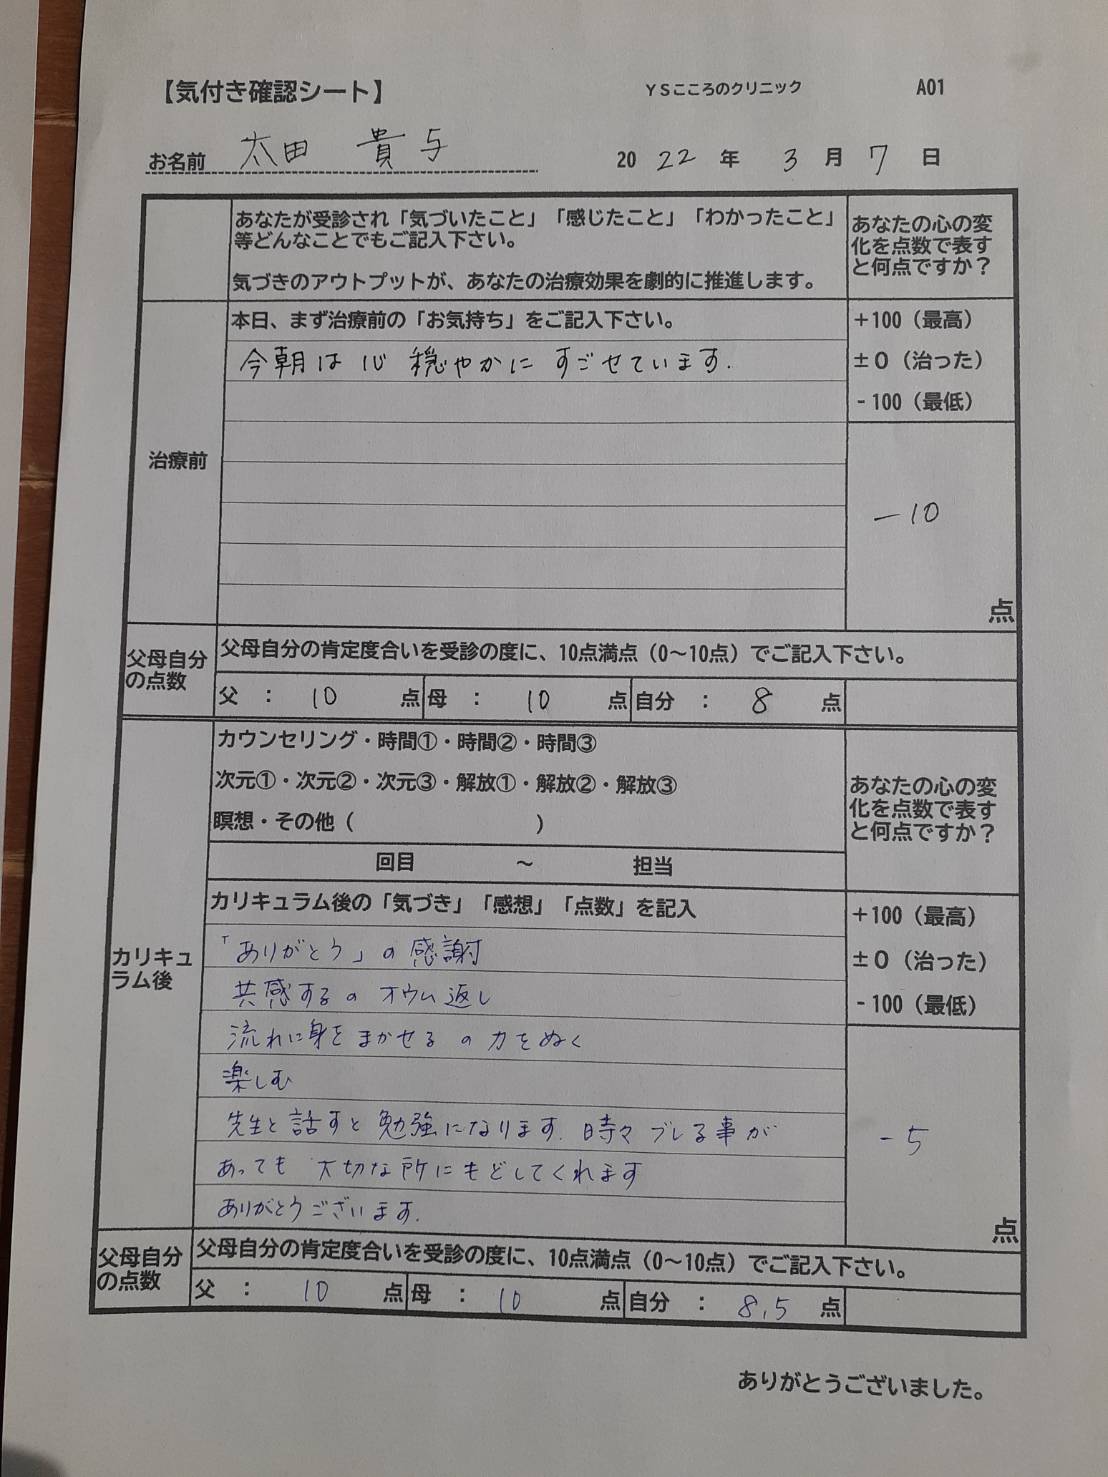 【気付き確認シート】 YSこころのクリニック A01
お名前 太田 貴与 2022年 3月 7日
あなたが受診され「気づいたこと」「感じたこと」「わかったこと」
等どんなことでもご記入下さい。
気づきのアウトプットが、あなたの治療効果を劇的に推進します。
あなたの心の変
化を点数で表す
と何点ですか？
治療前
本日、まず治療前の「お気持ち」をご記入下さい。
今朝は心穏やかにすごせています.
+100（最高）
±0（治った）
-100（最低）
-10
点
父母自分
の点数
父母自分の肯定度合いを受診の度に、10点満点（0～10点）でご記入下さい。
父 ： 10 点 母 ： 10 点 自分 ： 8 点
カリキュ
ラム後
カウンセリング・時間①・時間②・時間③
次元①・次元②・次元③・解放①・解放②・解放③
瞑想・その他（ ）
回目 ～ 担当
あなたの心の変
化を点数で表す
と何点ですか？
カリキュラム後の「気づき」「感想」「点数」を記入
「ありがとう」の感謝
共感するのオウム返し
流れに身をまかせるの力をぬく
楽しむ
先生と話すと勉強になります.時々ブレる事が
あっても大切な所にもどしてくれます
ありがとうございます.
+100（最高）
±0（治った）
-100（最低）
-5
点
父母自分
の点数
父母自分の肯定度合いを受診の度に、10点満点（0～10点）でご記入下さい。
父 ： 10 点 母 ： 10 点 自分 ： 8.5 点
ありがとうございました。